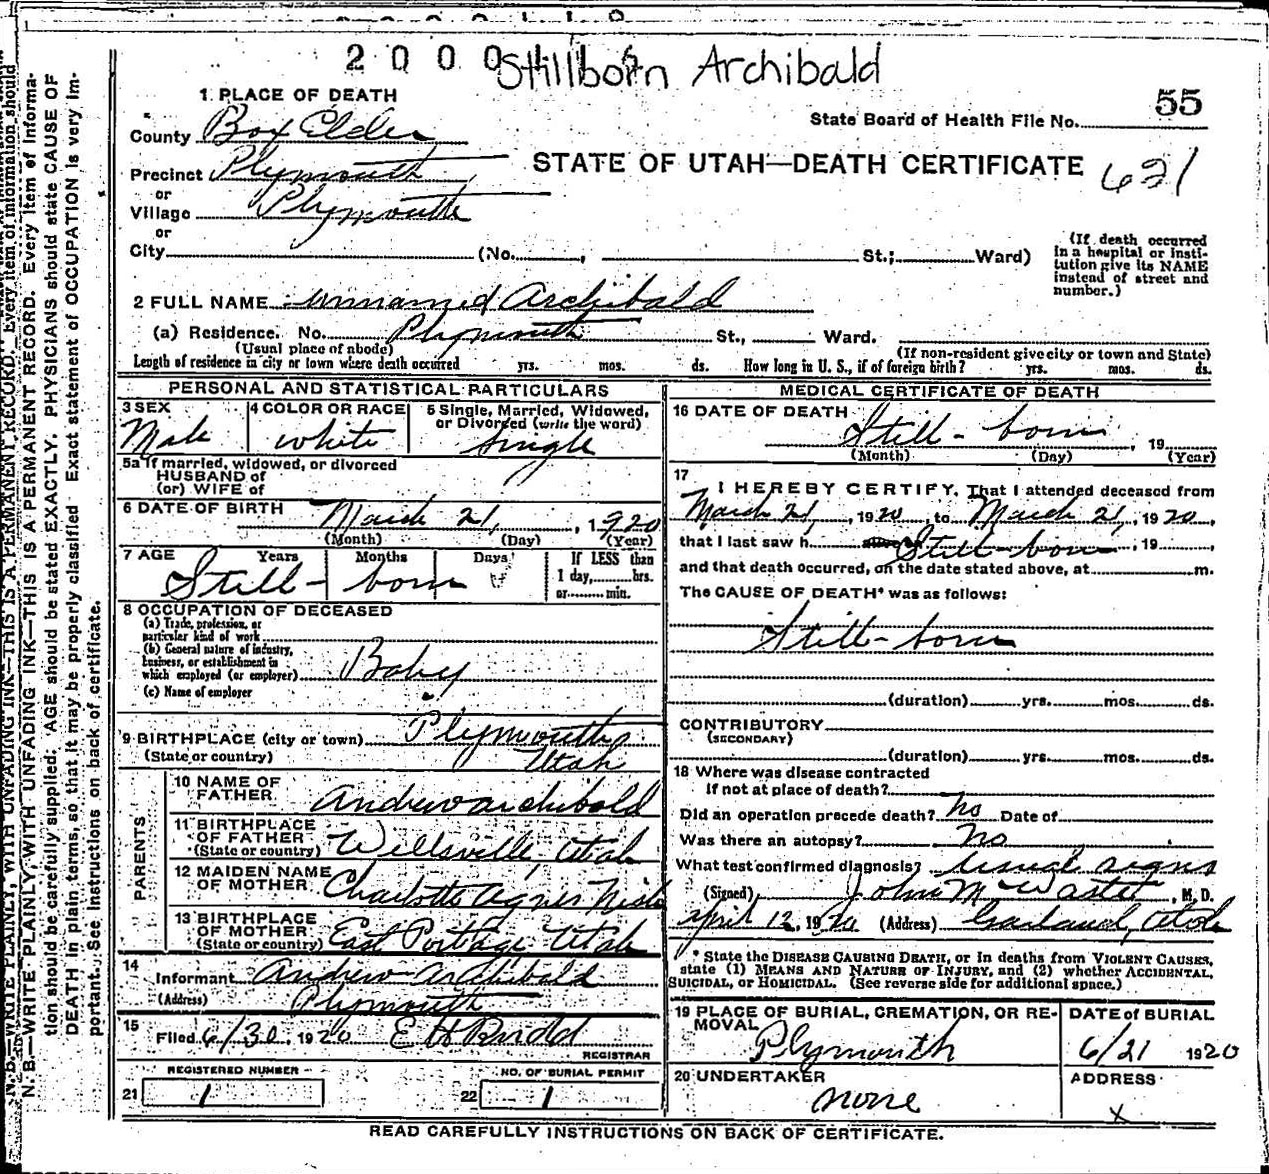 2000
Stillborn Archibald
1 PLACE OF DEATH
55
State Board of Health File No.
County Box Elder
STATE OF UTAH—DEATH CERTIFICATE 621
Precinct Plymouth
or
Village Plymouth
or
City (No. , St.; Ward)
(If death occurred in a hospital or insti-
tution give its NAME
instead of street and
number.)
2 FULL NAME unnamed Archibald
(a) Residence. No. Plymouth St., Ward.
(Usual place of abode) (If non-resident give city or town and State)
Length of residence in city or town where death occurred yrs. mos. ds. How long in U. S., if of foreign birth? yrs. mos. ds.
PERSONAL AND STATISTICAL PARTICULARS
3 SEX 4 COLOR OR RACE 5 Single, Married, Widowed,
or Divorced (write the word)
Male white Single
5a If married, widowed, or divorced
HUSBAND of
(or) WIFE of
6 DATE OF BIRTH March 21, 1920
(Month) (Day) (Year)
7 AGE Years Months Days If LESS than
1 day, hrs.
or min.
Still-born
8 OCCUPATION OF DECEASED
(a) Trade, profession, or
particular kind of work
(b) General nature of industry,
business, or establishment in
which employed (or employer) Baby
(c) Name of employer
9 BIRTHPLACE (city or town) Plymouth
(State or country) Utah
PARENTS
10 NAME OF
FATHER Andrew archibald
11 BIRTHPLACE
OF FATHER
(State or country) Wellsville, Utah
12 MAIDEN NAME
OF MOTHER Charlotte Agnes
13 BIRTHPLACE
OF MOTHER
(State or country) East Portage Utah
14
Informant Andrew archibald
(Address) Plymouth
15
Filed 6/30, 1920 E H
REGISTRAR
REGISTERED NUMBER NO. OF BURIAL PERMIT
21 1 22 1
MEDICAL CERTIFICATE OF DEATH
16 DATE OF DEATH
Still-born, 19
(Month) (Day) (Year)
17
I HEREBY CERTIFY, That I attended deceased from
March 21, 1920, to March 21, 1920,
that I last saw h Still-born, 19 ,
and that death occurred, on the date stated above, at m.
The CAUSE OF DEATH* was as follows:
Still-born
(duration) yrs. mos. ds.
CONTRIBUTORY
(SECONDARY)
(duration) yrs. mos. ds.
18 Where was disease contracted
if not at place of death?
Did an operation precede death? No Date of
Was there an autopsy? No
What test confirmed diagnosis? usual signs
(Signed) John M, M. D.
April 12, 1920 (Address) Garland, Utah
* State the DISEASE CAUSING DEATH, or in deaths from VIOLENT CAUSES,
state (1) MEANS AND NATURE OF INJURY, and (2) whether ACCIDENTAL,
SUICIDAL, or HOMICIDAL. (See reverse side for additional space.)
19 PLACE OF BURIAL, CREMATION, OR RE-
MOVAL
Plymouth
DATE of BURIAL
6/21 1920
20 UNDERTAKER
none
ADDRESS
x
READ CAREFULLY INSTRUCTIONS ON BACK OF CERTIFICATE.
N. B.—WRITE PLAINLY, WITH UNFADING INK—THIS IS A PERMANENT RECORD. Every item of informa-
tion should be carefully supplied; AGE should be stated EXACTLY. PHYSICIANS should state CAUSE OF
DEATH in plain terms, so that it may be properly classified. Exact statement of OCCUPATION is very im-
portant. See instructions on back of certificate.